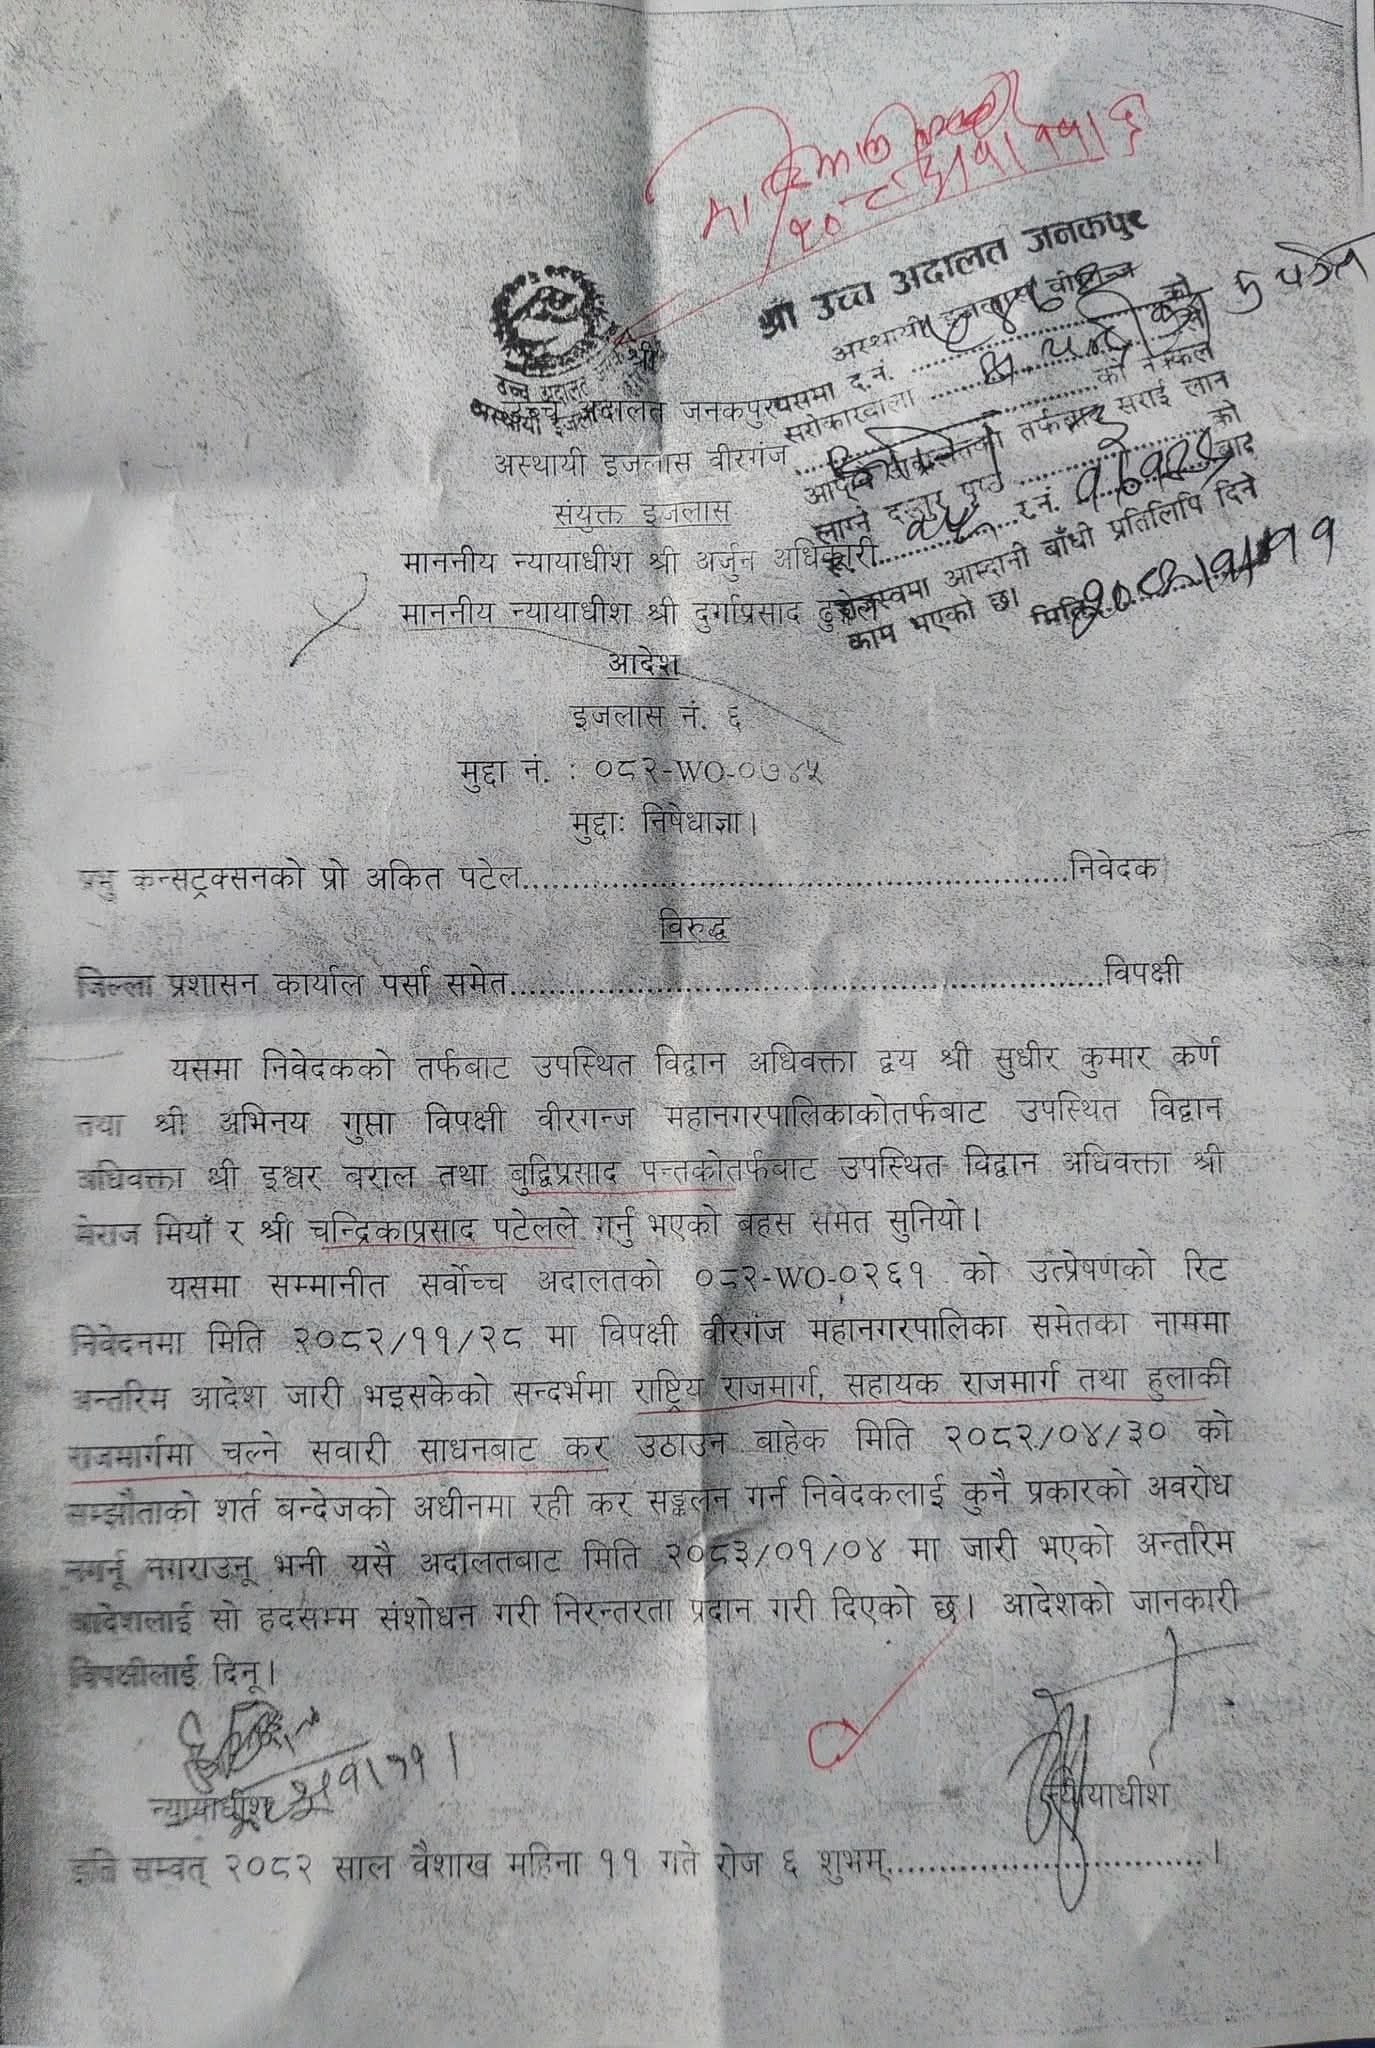 श्री उच्च अदालत जनकपुर
अस्थायी इजलास वीरगंज
यसमा द.नं. को
सरोकारवाला
को नक्कल
सराई लान
को
र.नं.
बाद
राजस्वमा आम्दानी बाँधी प्रतिलिपि दिने
काम भएको छ।
मिति
श्री
उच्च अदालत जनकपुर
अस्थायी इजलास वीरगंज
संयुक्त इजलास
माननीय न्यायाधीश श्री अर्जुन अधिकारी
माननीय न्यायाधीश श्री दुर्गाप्रसाद
आदेश
इजलास नं. ६
मुद्दा नं. : ०८२-WO-०७४५
मुद्दाः निषेधाज्ञा।
प्रभु कन्सट्रक्सनको प्रो अकित पटेल....................निवेदक
विरुद्ध
जिल्ला प्रशासन कार्याल पर्सा समेत....................विपक्षी
यसमा निवेदकको तर्फबाट उपस्थित विद्वान अधिवक्ता द्वय श्री सुधीर कुमार कर्ण
तथा श्री अभिनय गुप्ता विपक्षी वीरगन्ज महानगरपालिकाकोतर्फबाट उपस्थित विद्वान
अधिवक्ता श्री इश्वर बराल तथा बुद्धिप्रसाद पन्तकोतर्फबाट उपस्थित विद्वान अधिवक्ता श्री
मेराज मियाँ र श्री चन्द्रिकाप्रसाद पटेलले गर्नु भएको बहस समेत सुनियो।
यसमा सम्मानीत सर्वोच्च अदालतको ०८२-WO-०२६१ को उत्प्रेषणको रिट
निवेदनमा मिति २०८२/११/२८ मा विपक्षी वीरगंज महानगरपालिका समेतका नाममा
अन्तरिम आदेश जारी भइसकेको सन्दर्भमा राष्ट्रिय राजमार्ग, सहायक राजमार्ग तथा हुलाकी
राजमार्गमा चल्ने सवारी साधनबाट कर उठाउन बाहेक मिति २०८२/०४/३० को
सम्झौताको शर्त बन्देजको अधीनमा रही कर सङ्कलन गर्न निवेदकलाई कुनै प्रकारको अवरोध
नगर्नू नगराउनू भनी यसै अदालतबाट मिति २०८३/०१/०४ मा जारी भएको अन्तरिम
आदेशलाई सो हदसम्म संशोधन गरी निरन्तरता प्रदान गरी दिएको छ। आदेशको जानकारी
विपक्षीलाई दिनू।
न्यायाधीश
न्यायाधीश
इति सम्वत् २०८२ साल वैशाख महिना ११ गते रोज ६ शुभम्....................।